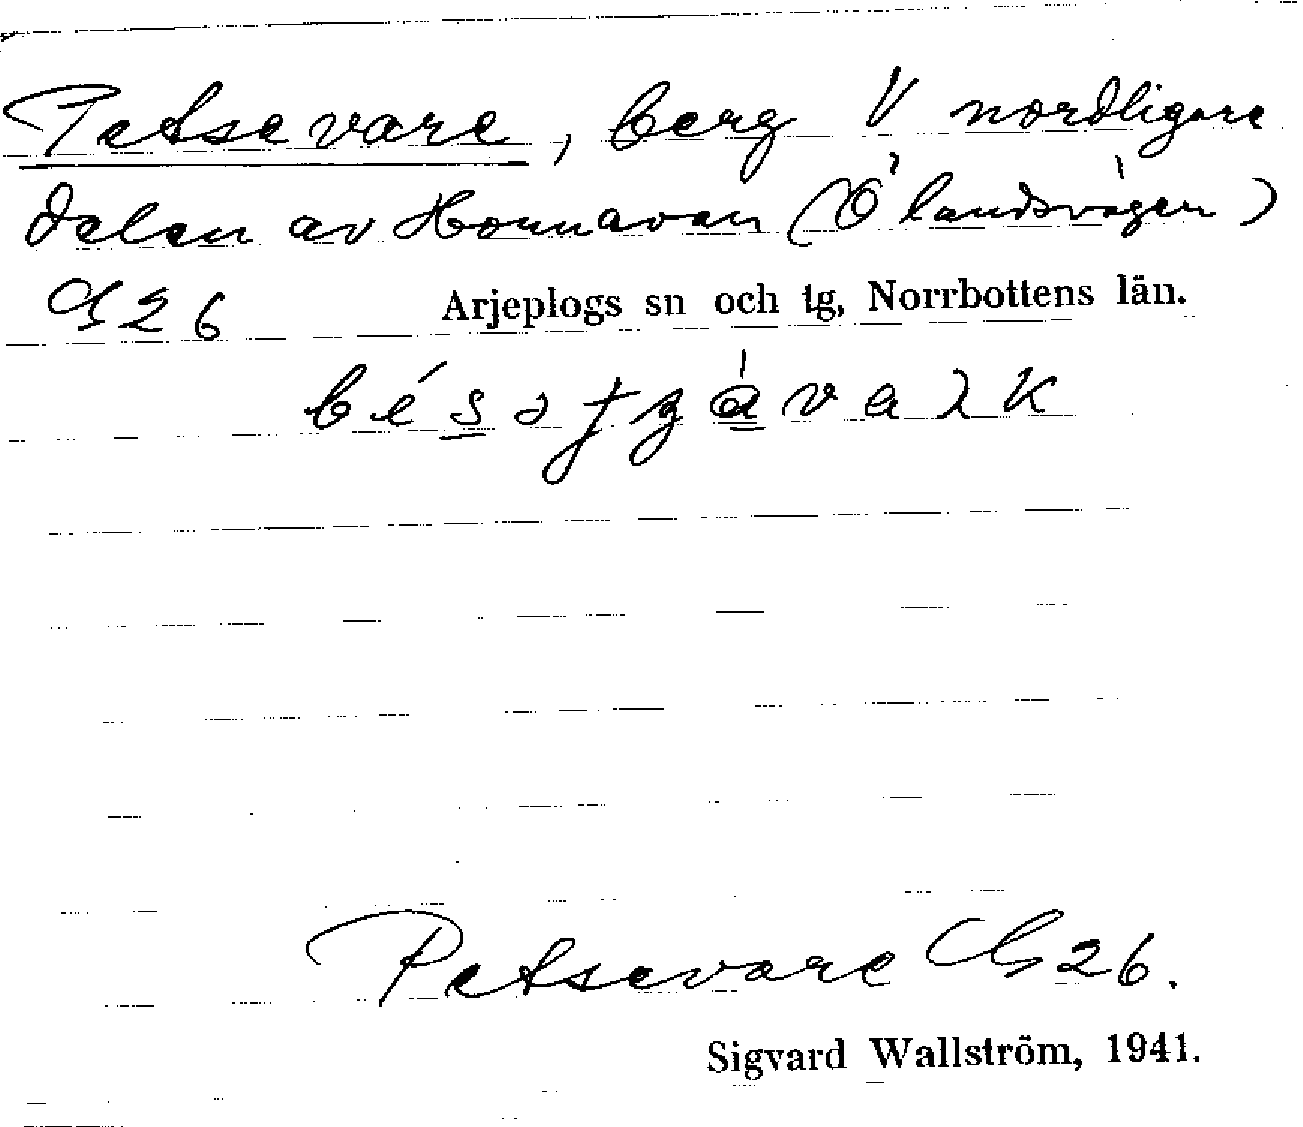 Petsevare, berg V nordligare
delen av Hornavan (Ö landsvägen)
GS 26 Arjeplogs sn och tg, Norrbottens län.
Petsevare GS 26.
Sigvard Wallström, 1941.